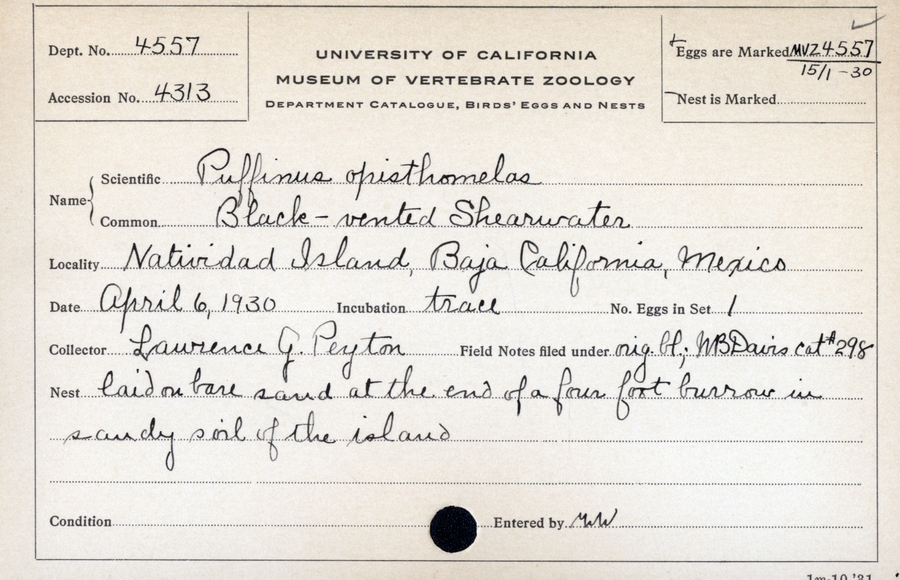 Dept. No. 4557
Accession No. 4313
UNIVERSITY OF CALIFORNIA
MUSEUM OF VERTEBRATE ZOOLOGY
DEPARTMENT CATALOGUE, BIRDS' EGGS AND NESTS
Eggs are Marked MVZ 4557
15/1 - 30
Nest is Marked
Name
Scientific Puffinus opisthomelas
Common Black-vented Shearwater
Locality Natividad Island, Baja California, Mexico
Date April 6, 1930 Incubation trace No. Eggs in Set 1
Collector Lawrence G. Peyton Field Notes filed under orig. bl.; WB Davis cat #298
Nest laid on bare sand at the end of a four foot burrow in
sandy soil of the island
Condition Entered by
1m-10,'31